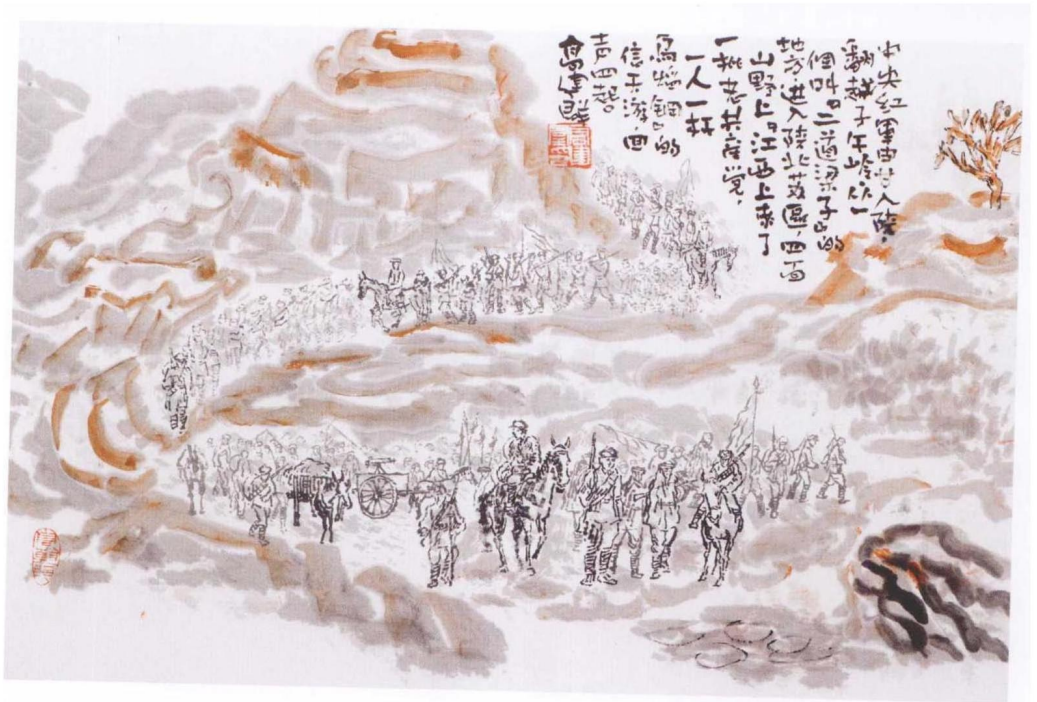 中央红軍由甘入陕，
翻越子午岭从一
個叫“二道梁子”的
地方进入陕北苏區，四面
山野上“江西上来了
一批老共产党，
一人一杆
烏焰钢”的
信天游回
声四起
高建群